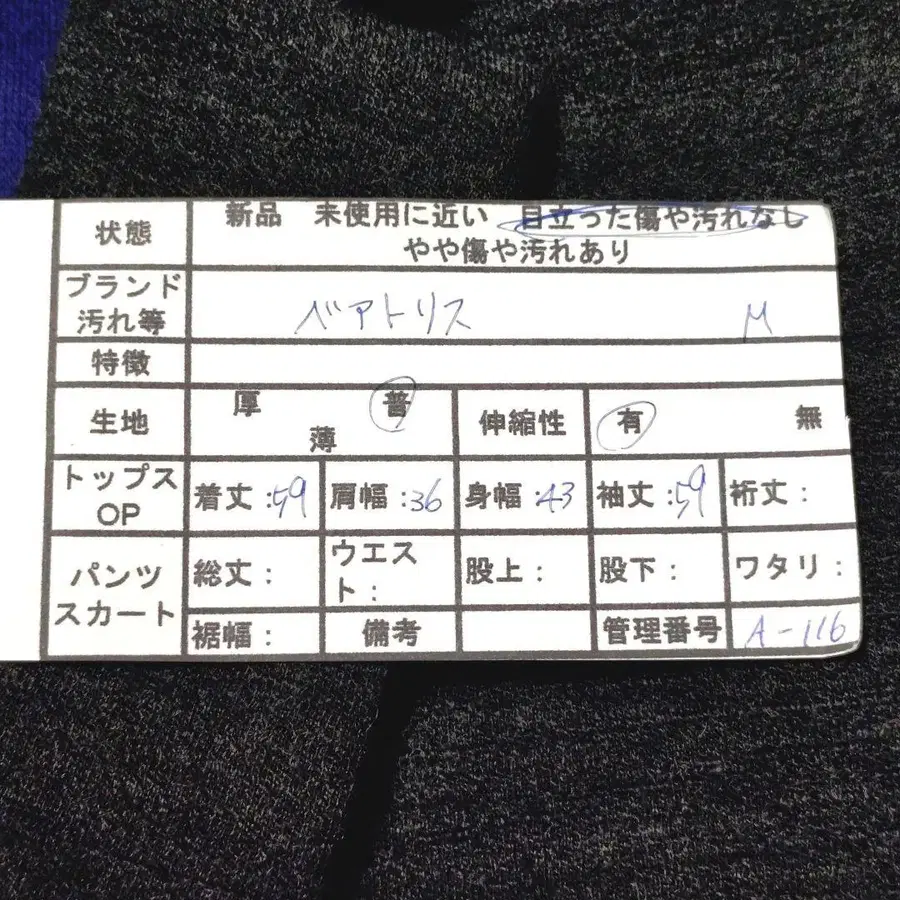 状態 新品 未使用に近い 目立った傷や汚れなし
やや傷や汚れあり
ブランド
汚れ等 ベアトリス M
特徴
生地 厚 普 薄 伸縮性 有 無
トップス
OP 着丈:59 肩幅:36 身幅:43 袖丈:59 裄丈:
パンツ
スカート 総丈: ウエス
ト: 股上: 股下: ワタリ:
裾幅: 備考 管理番号 A-116